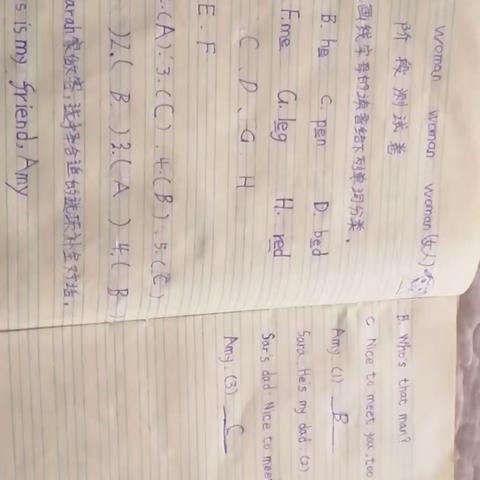 woman woman woman(女人)
阶段测试卷
画线字母的读音给下列单词分类。
B. he C. pen D. bed
F. me G. leg H. red
C、D、G H
E、F
(A)、3.(C)、4.(B)、5.(C)
)2.( B )3.( A ) 4.( B )
arah家做客,选择合适的选项补全对话。
s is my friend, Amy
B. Who's that man?
C. Nice to meet you, too
Amy: (1) B
Sara: He's my dad. (2)
Sar's dad: Nice to mee
Amy: (3) C